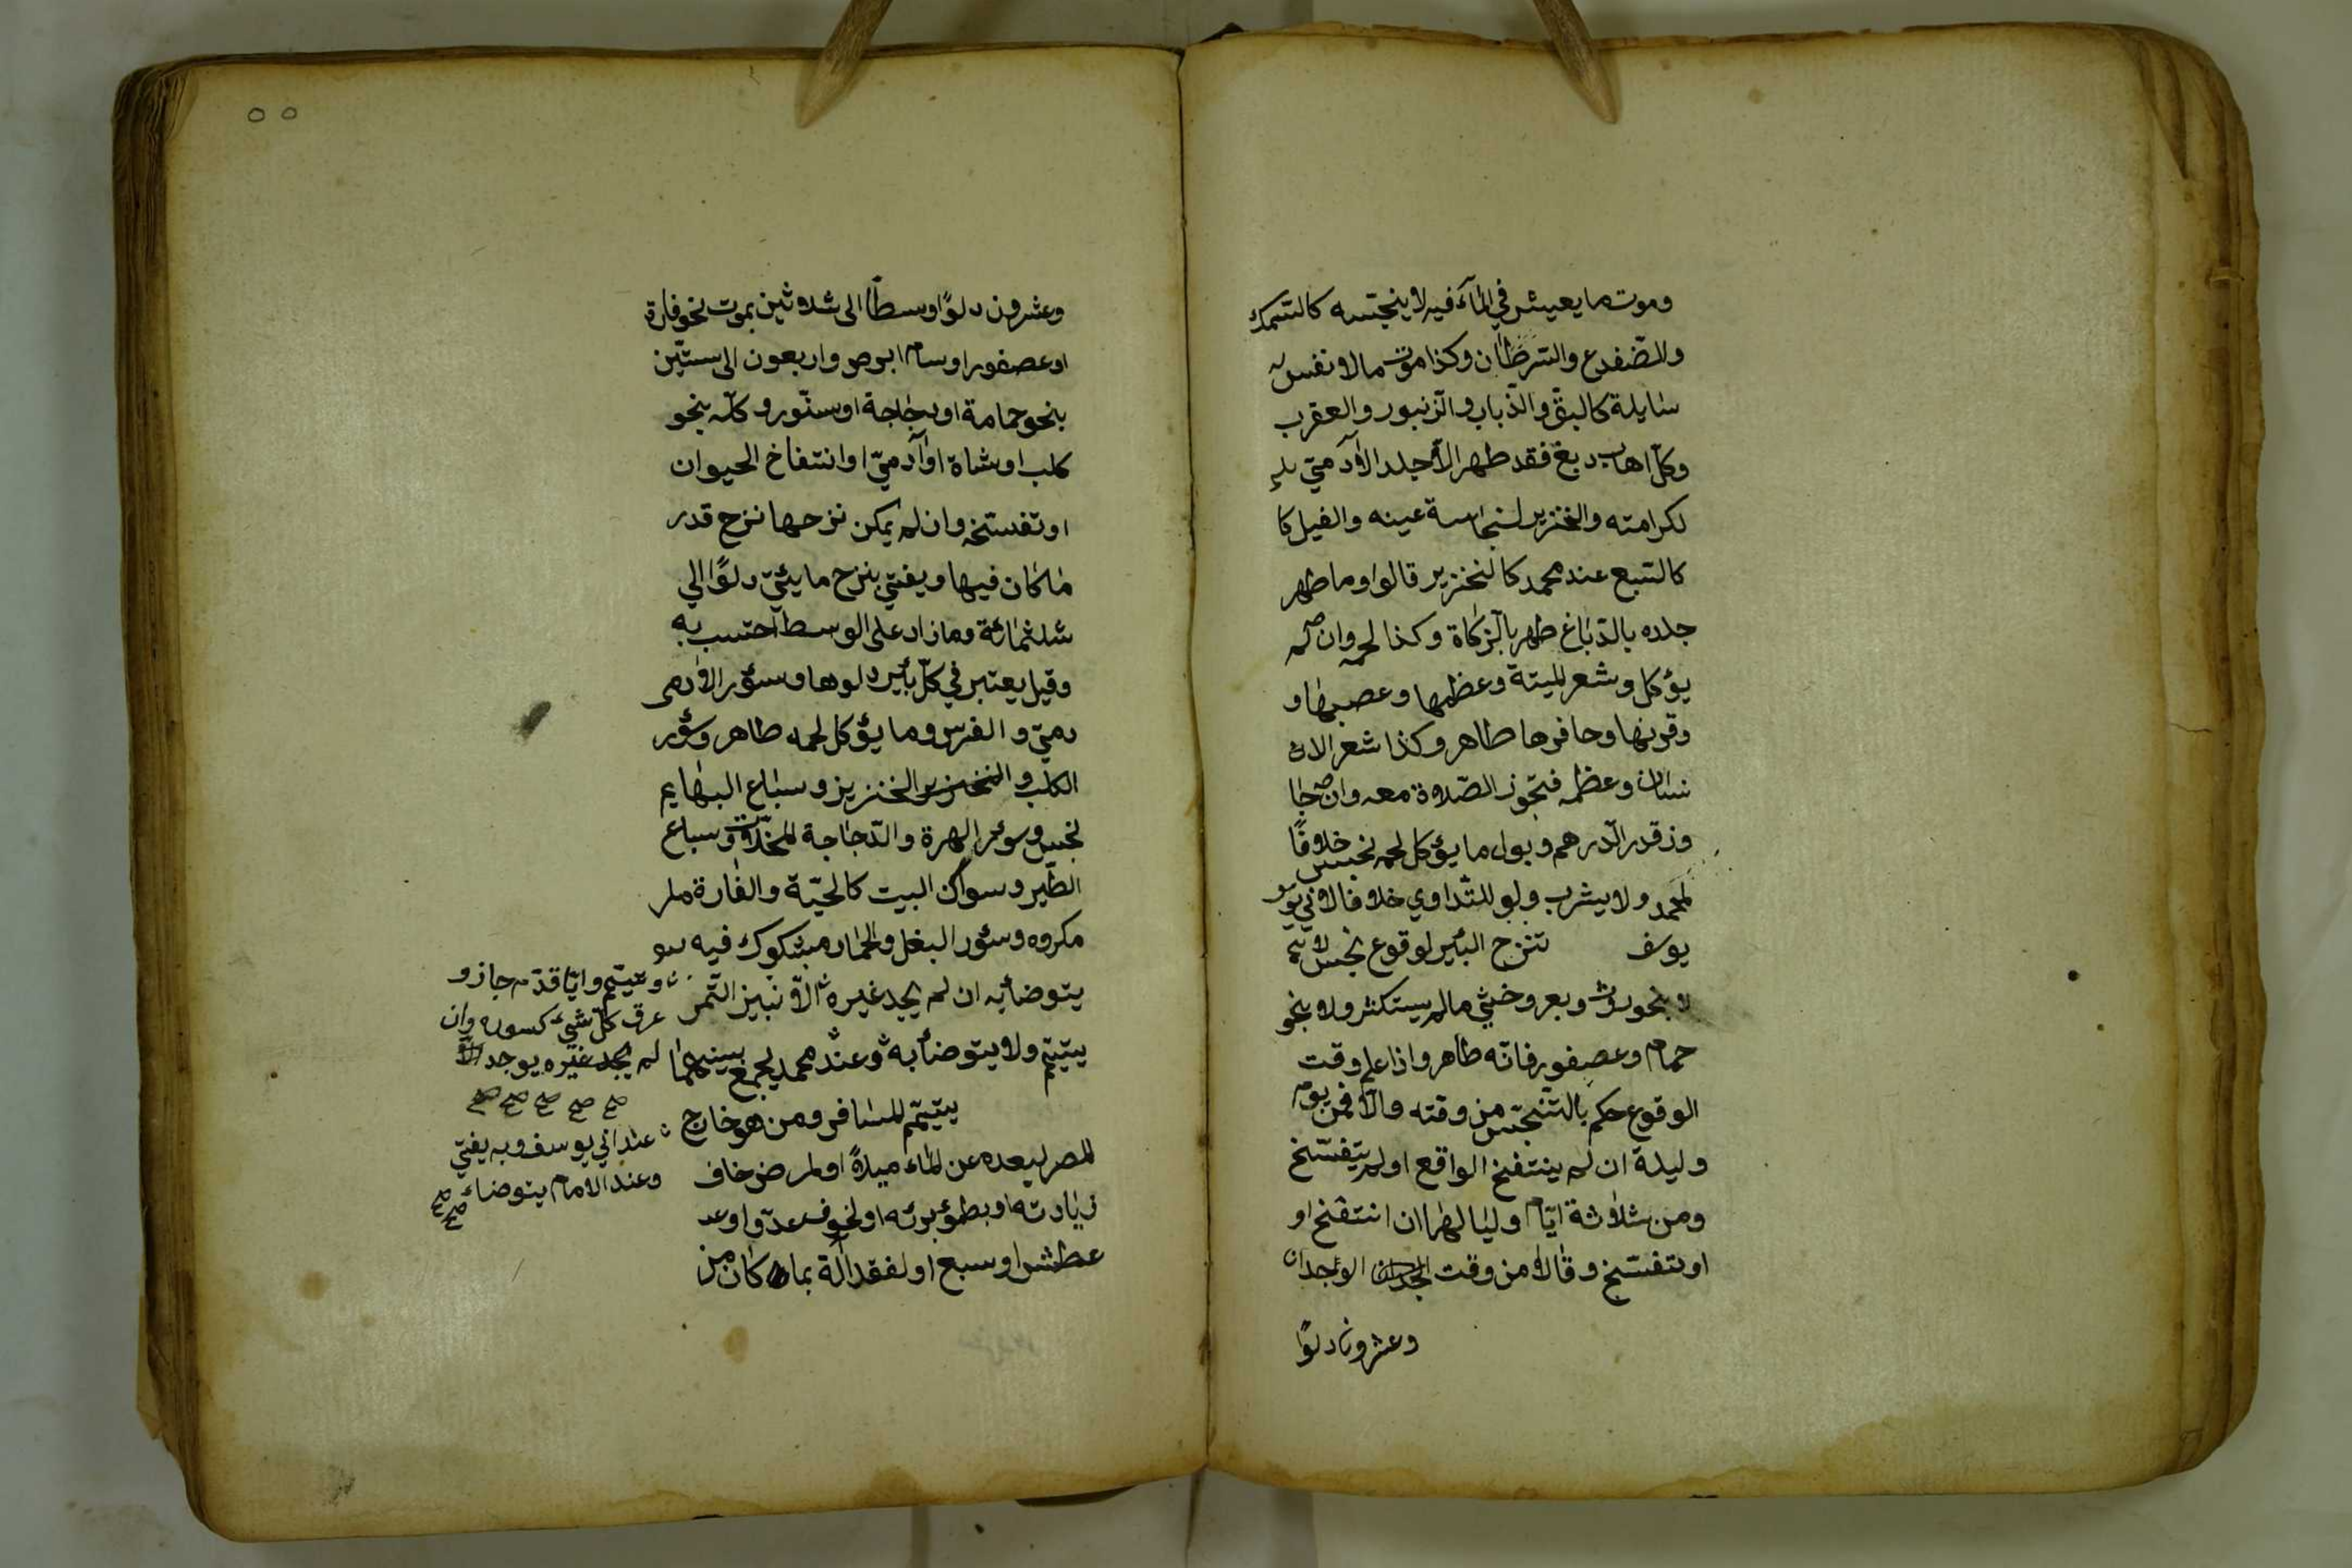 وموت ما يعيش في الماء فيه لا ينجسه كالسمك
والضفدع والسرطان وكذا موت ما لا نفس له
سايلة كالبق والذباب والزنبور والعقرب
وكل اهاب دبغ فقد طهر الا جلد الآدمي
لكرامته والخنزير لنجاسة عينه والفيل كا
كالسبع عند محمد كالخنزير قالوا وما طهر
جلده بالدباغ طهر بالزكاة وكذا لحمه وان لم
يؤكل وشعر الميتة وعظمها وعصبها و
وقرنها وحافرها طاهر وكذا شعر الان
نسان وعظمه فتجوز الصلاة معه وان جا
وز قدر الدرهم وبول ما يؤكل لحمه نجس خلافا
لمحمد ولا يشرب ولو للتداوي خلافا لابي يو
يوسف تنزح البئر لوقوع نجس لا
لا بنحو روث وبعر وخثي ما لم يستكثر ولا بنحو
حمام وعصفور فانه طاهر واذا علم وقت
الوقوع حكم بالتنجس من وقته والا فمن يوم
وليلة ان لم ينتفخ الواقع او لم يتفسخ
ومن ثلاثة ايام ولياليها ان انتفخ او
او تفسخ وقالا من وقت الوجدان
وعشرون دلوا
٥٥
وعشرون دلوا وسطا الى ثلاثين بموت نحو فارة
او عصفور او سام ابرص واربعون الى ستين
بنحو حمامة او دجاجة او سنور وكله بنحو
كلب او شاة او آدمي او انتفاخ الحيوان
او تفسخه وان لم يمكن نزحها نزح قدر
ما كان فيها ويفتى بنزح مايتي دلوا الي
ثلثمائة وما زاد على الوسط احتسب به
وقيل يعتبر في كل بئر دلوها وسؤر الادمى
دمي والفرس وما يؤكل لحمه طاهر وسؤر
الكلب والخنزير الخنزيز وسباع البهايم
نجس وسؤر الهرة والدجاجة المخلات وسباع
الطير وسواكن البيت كالحية والفارة
مكروه وسؤر البغل والحمار مشكوك فيه
يتوضأ به ان لم يجد غيره الا نبيز التمر
يتيمم ولا يتوضأ به وعند محمد يجمع بينهما
يتيمم المسافر ومن هو خارج
المصر لبعده عن الماء ميلا او لمرض خاف
زيادته او بطؤ برئه او لخوف عدو او
عطش او سبع او لفقد آلة بما كان من
ويتيمم وايا قدم جاز و
عرق كل شيء كسوره وان
لم يجد غيره يوجد الا
صح صح صح صح صح
عند ابي يوسف وبه يفتي
وعند الامام يتوضاء صح صح